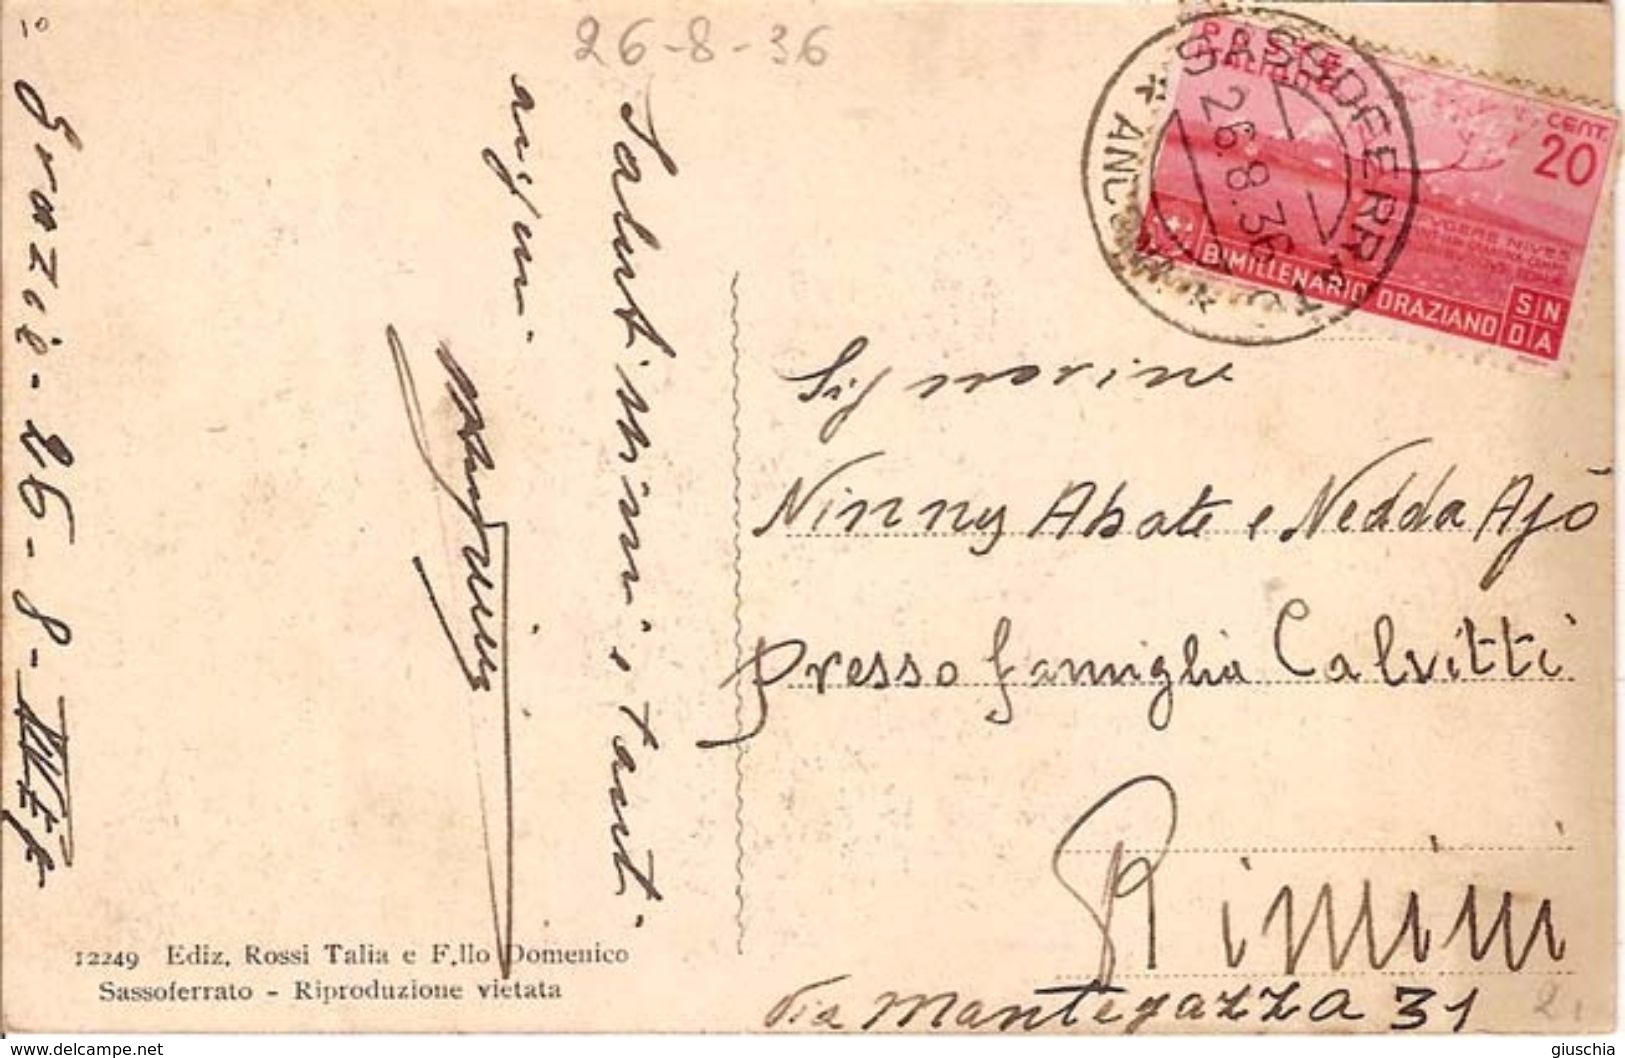 10
26-8-36
SASSOFERRATO
* ANCONA *
26.8.36
POSTE
ITALIANE
CENT.
20
BIMILLENARIO ORAZIANO
Saluti tanti
Signorine
Ninny Abate e Nedda Ajò
presso famiglia Calvitti
Rimini
Via Mantegazza 31
12249 Ediz. Rossi Talia e F.llo Domenico
Sassoferrato - Riproduzione vietata
2.
www.delcampe.net
giuschia